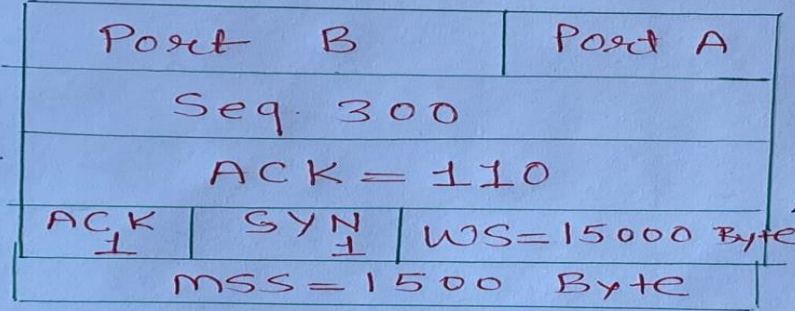 Port B Port A
Seq. 300
ACK = 110
ACK 1 SYN 1 WS = 15000 Byte
MSS = 1500 Byte